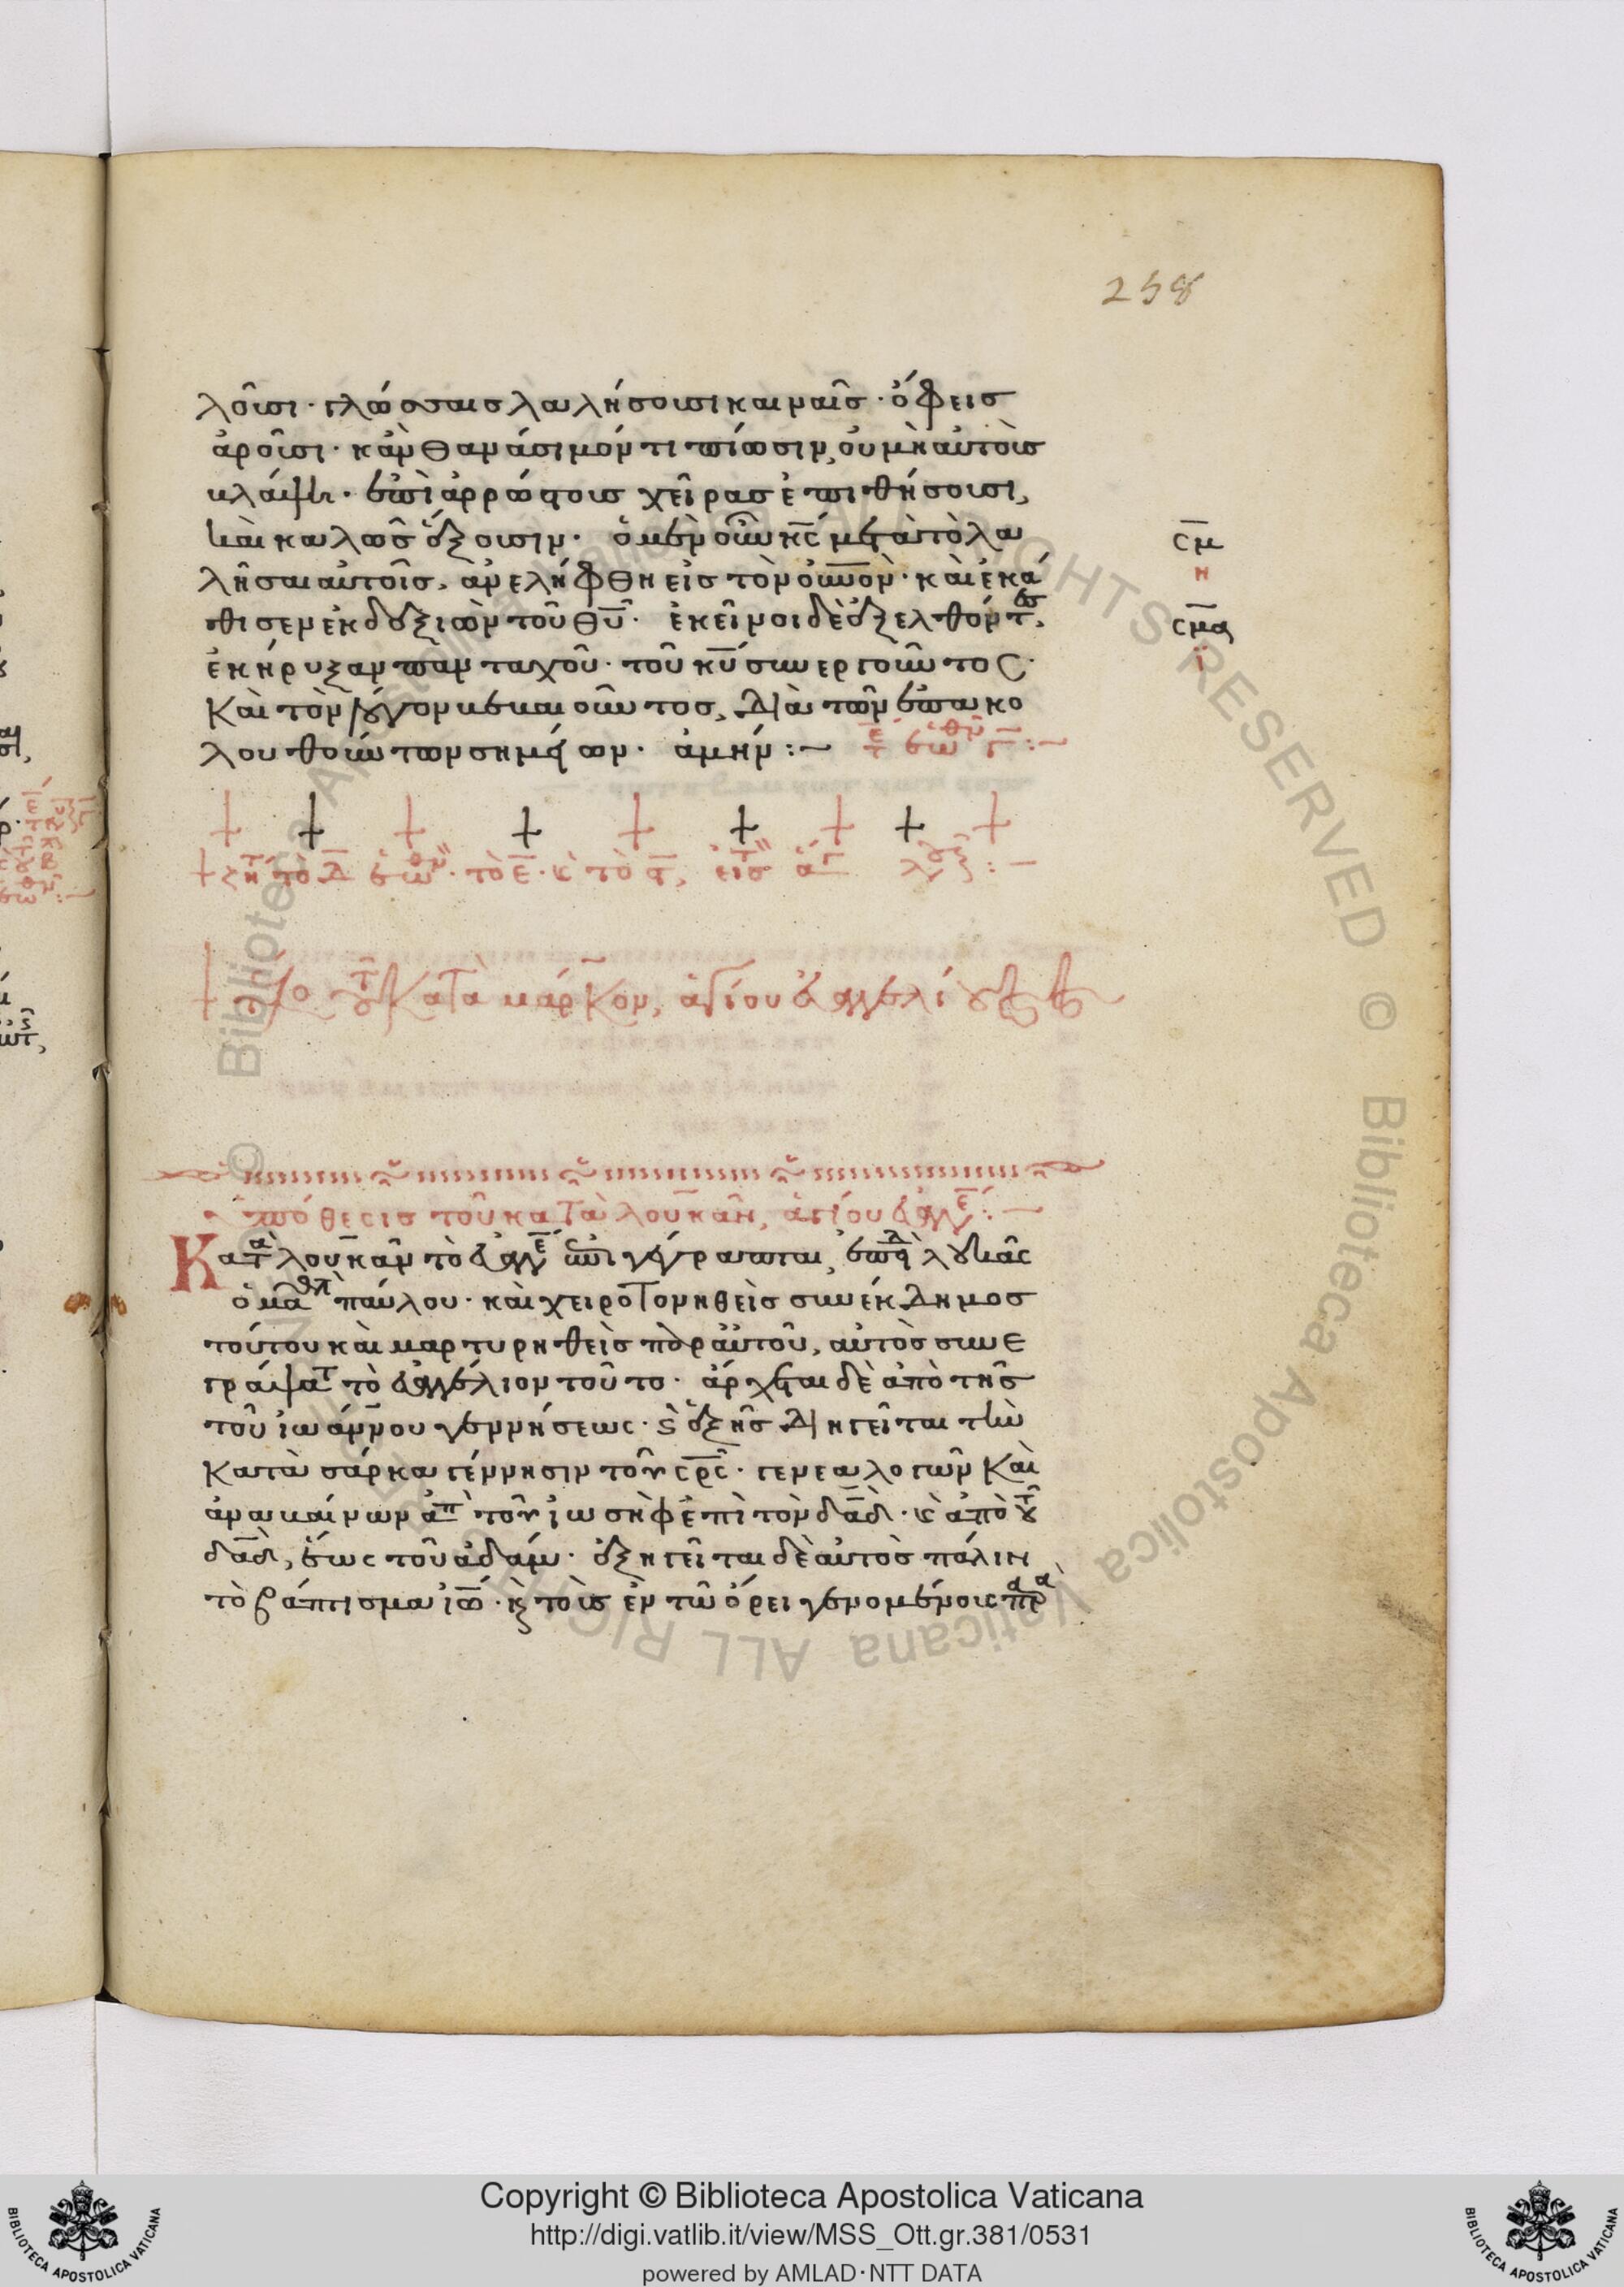 258
λοῦσι· γλώσσαις λαλήσουσι καιναῖς· ὄφεις
ἀροῦσι· κἂν θανάσιμόν τι πίωσιν, οὐ μὴ αὐτοὺς
βλάψει· ἐπὶ ἀρρώστους χεῖρας ἐπιθήσουσι,
καὶ καλῶς ἕξουσιν· ὁ μὲν οὖν κ̅ς̅ μετὰ τὸ λα
λῆσαι αὐτοῖς, ἀνελήφθη εἰς τὸν ο̅υ̅ν̅ο̅ν̅· καὶ ἐκά
θισεν ἐκ δεξιῶν τοῦ θ̅υ̅· ἐκεῖνοι δὲ ἐξελθόντες,
ἐκήρυξαν πανταχοῦ· τοῦ κ̅υ̅ συνεργοῦντος·
καὶ τὸν λόγον βεβαιοῦντος, διὰ τῶν ἐπακο
λουθούντων σημείων· ἀμήν :—
σ̅μ̅
η
σ̅μ̅α̅
ι
τὸ ε̅· κ̀ τὸ
κατὰ μάρκον, ἁγίου εὐαγγελίου
ὑπόθεσις τοῦ κατὰ λουκᾶν, ἁγίου εὐαγγε :—
Κατὰ λουκᾶν τὸ εὐαγγε ἐπιγέγραπται, ἐπειδ λουκᾶς
ὁ μαθητ παύλου· καὶ χειροτονηθεὶς συνέκδημος
τούτου καὶ μαρτυρηθεὶς παρ αὐτοῦ, αὐτὸς συνε
γράψατ τὸ εὐαγγέλιον τοῦτο· ἄρχεται δὲ ἀπὸ τῆς
τοῦ ἰωάννου γεννήσεως· ἑξῆς διηγεῖται τὴν
κατὰ σάρκα γέννησιν τοῦ σ̅ρ̅ς̅· γενεαλογῶν καὶ
ἀναβαίνων ἀπ τοῦ ἰωσὴφ ἐπὶ τὸν δ̅α̅δ̅· κ̀ ἀπὸ τοῦ
δ̅α̅δ̅, ἕως τοῦ ἀδάμ· ἐξηγεῖται δὲ αὐτὸς πάλιν
τὸ βάπτισμα ἰ̅ω̅· κ̀ τοὺς ἐν τῶ ὄρει γενομένους
Copyright © Biblioteca Apostolica Vaticana
http://digi.vatlib.it/view/MSS_Ott.gr.381/0531
powered by AMLAD·NTT DATA
BIBLIOTECA APOSTOLICA VATICANA
BIBLIOTECA APOSTOLICA VATICANA
© Biblioteca Apostolica Vaticana ALL RIGHTS RESERVED